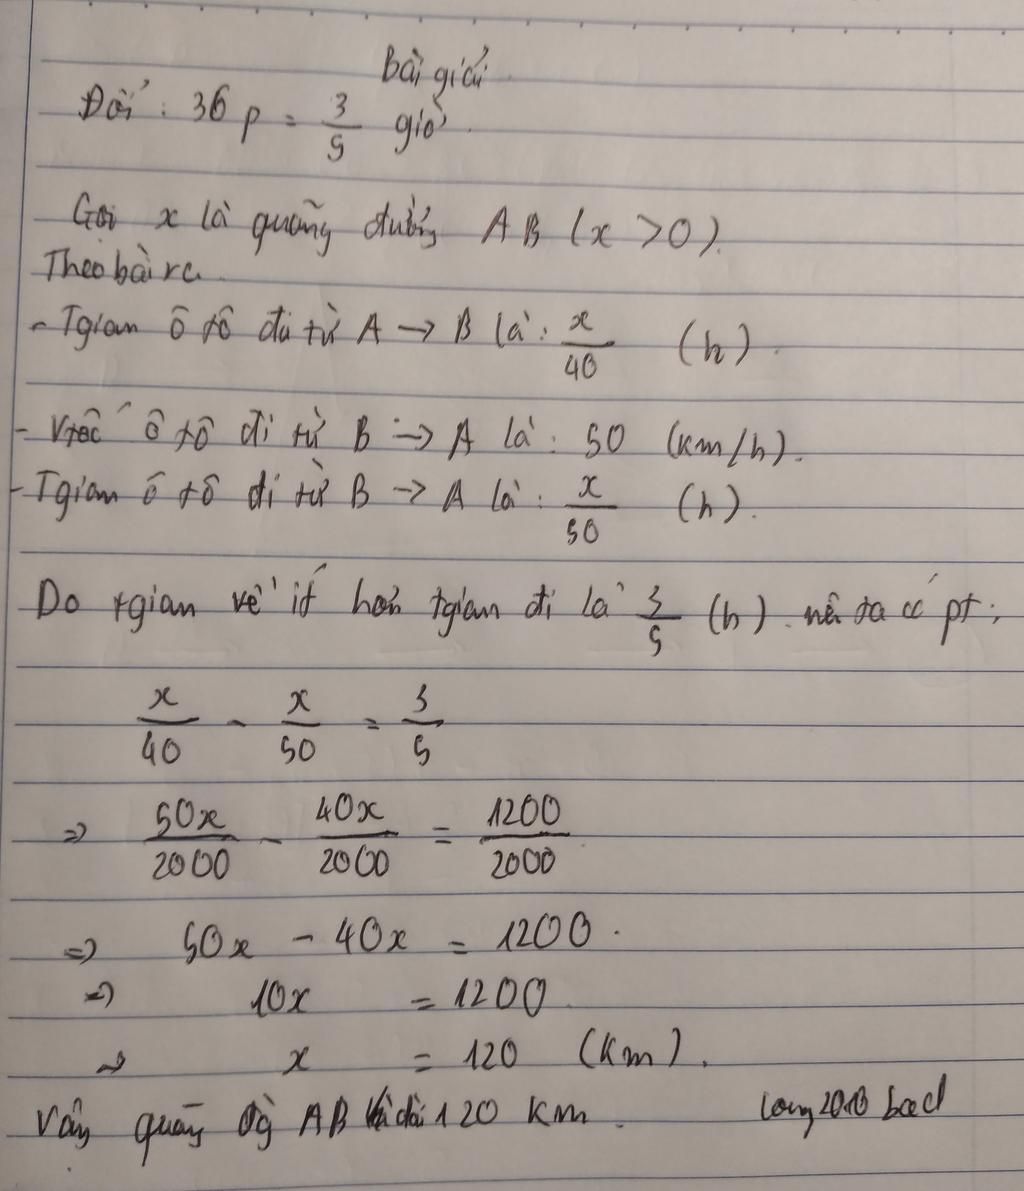 Bài giải
Đổi : 36 p = 3/5 giờ.
Gọi x là quãng đường AB (x > 0).
Theo bài ra.
- Tgian ô tô đi từ A → B là : x/40 (h).
- Vtốc ô tô đi từ B → A là : 50 (km/h).
- Tgian ô tô đi từ B → A là : x/50 (h).
Do tgian về ít hơn tgian đi là 3/5 (h). nên ta có pt :
x/40 - x/50 = 3/5
=> 50x/2000 - 40x/2000 = 1200/2000
=> 50x - 40x = 1200.
=> 10x = 1200
=> x = 120 (km).
Vậy quãng đg AB dài 120 km.
long2010